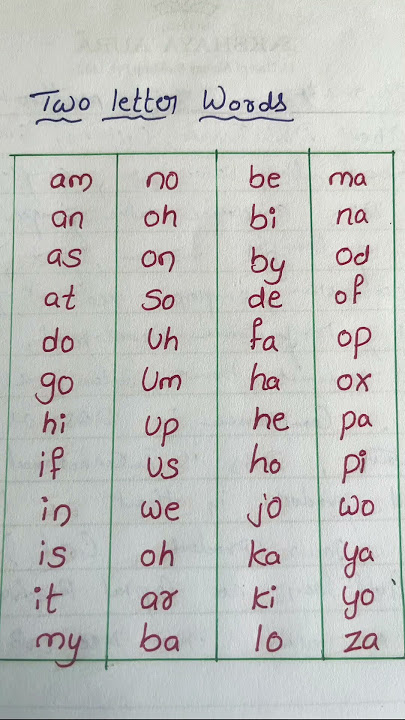 Two letter Words
am no be ma
an oh bi na
as on by od
at so de of
do uh fa op
go um ha ox
hi up he pa
if us ho pi
in we jo wo
is oh ka ya
it ar ki yo
my ba lo za